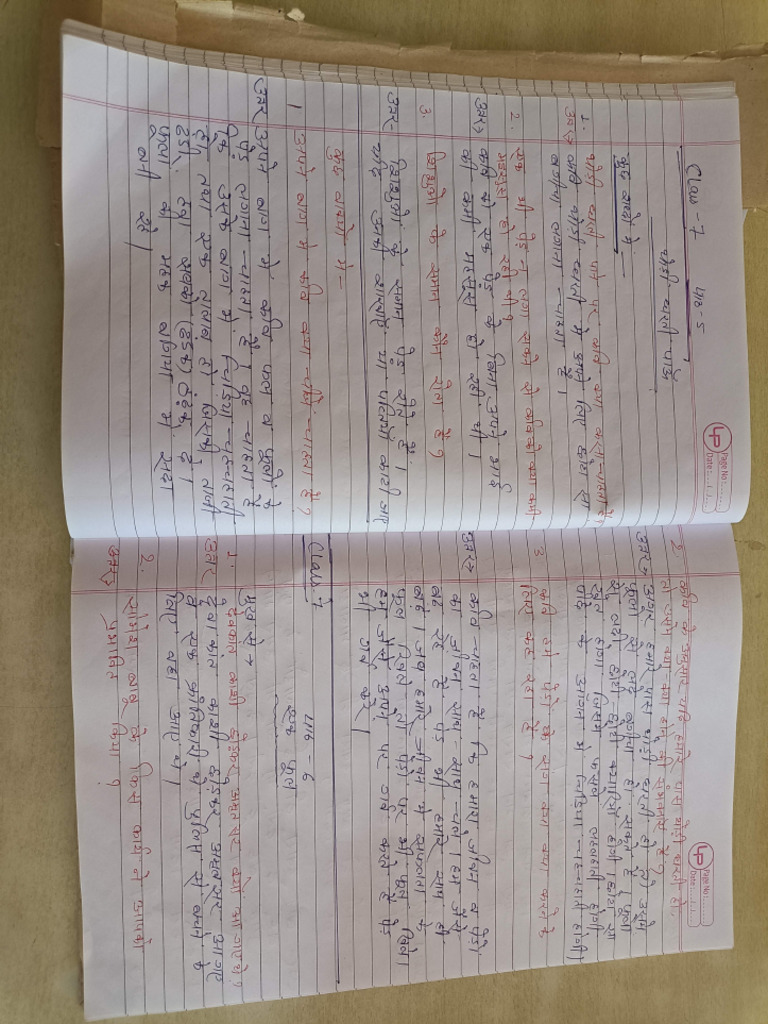 Page No.:
Date:
Class - 7 पाठ - 5
थोड़ी धरती पाऊँ
कुछ शब्दों में
1. थोड़ी धरती पाने पर कवि क्या करना चाहता है,
उत्तर कवि थोड़ी धरती में अपने लिए छोटा सा
बगीचा लगाना चाहता है।
2. एक भी पेड़ न लगा सकने से कवि को क्या कमी
महसूस हो रही थी?
उत्तर कवि को एक पेड़ के बिना अपने भाई
की कमी महसूस हो रही थी।
3. शिशुओं के समान कौन रोता है?
उत्तर- शिशुओं के समान पेड़ रोते हैं।
यदि उनकी शाखाएँ या पत्तियाँ काटी जाए
कुछ वाक्यों में -
1 अपने बाग में कवि क्या चीजें चाहता है?
उत्तर अपने बाग में कवि फल व फूलों के
पेड़ लगाना चाहता है। वह चाहता है
कि उसके बाग में चिड़िया चहचहाती
हो तथा एक जलाशय हो जिसकी
ठंडी हवा सबको ठंढक दे।
फूलों की महक बगिया में सदा
बनी रहे।
Page No.:
Date:
2. कवि के अनुसार यदि हमारे पास थोड़ी धरती हो
तो उसमें क्या क्या होने की संभावना है?
उत्तर अगर हमारे पास थोड़ी धरती हो तो उसमें
फूलों से लदे बगीचा हो सकते हैं, फूलों
से लदी छोटी छोटी क्यारियाँ होगी। छोटा सा
खेत होगा जिसमें फसलें लहलहाती होगी
घर के आंगन में चिड़िया चहचहाती होगी।
3 कवि हमें पेड़ों के संग क्या क्या करने के
लिए कह रहा है?
उत्तर कवि कहता है कि हमारा जीवन व पेड़ों
का जीवन साथ-साथ चलें। हम जैसे
बढ़ रहे है पेड़ भी हमारे साथ ही
बढ़े। जब हमारे जीवन में सफलता के
फूल खिले तो पेड़ों पर भी फूल खिले।
हम जैसे अपने पर गर्व करते हैं पेड़
भी गर्व करे।
Class 7 पाठ - 6
मुख से
1. देवकांत काशी छोड़कर अमृतसर क्यों आ गए थे?
उत्तर देवकांत काशी छोड़कर अमृतसर आ गए
वे एक क्रांतिकारी थे पुलिस से बचने के
लिए वहां आए थे।
2. बाबू के किस कार्य ने आपको
उत्तर प्रभावित किया?